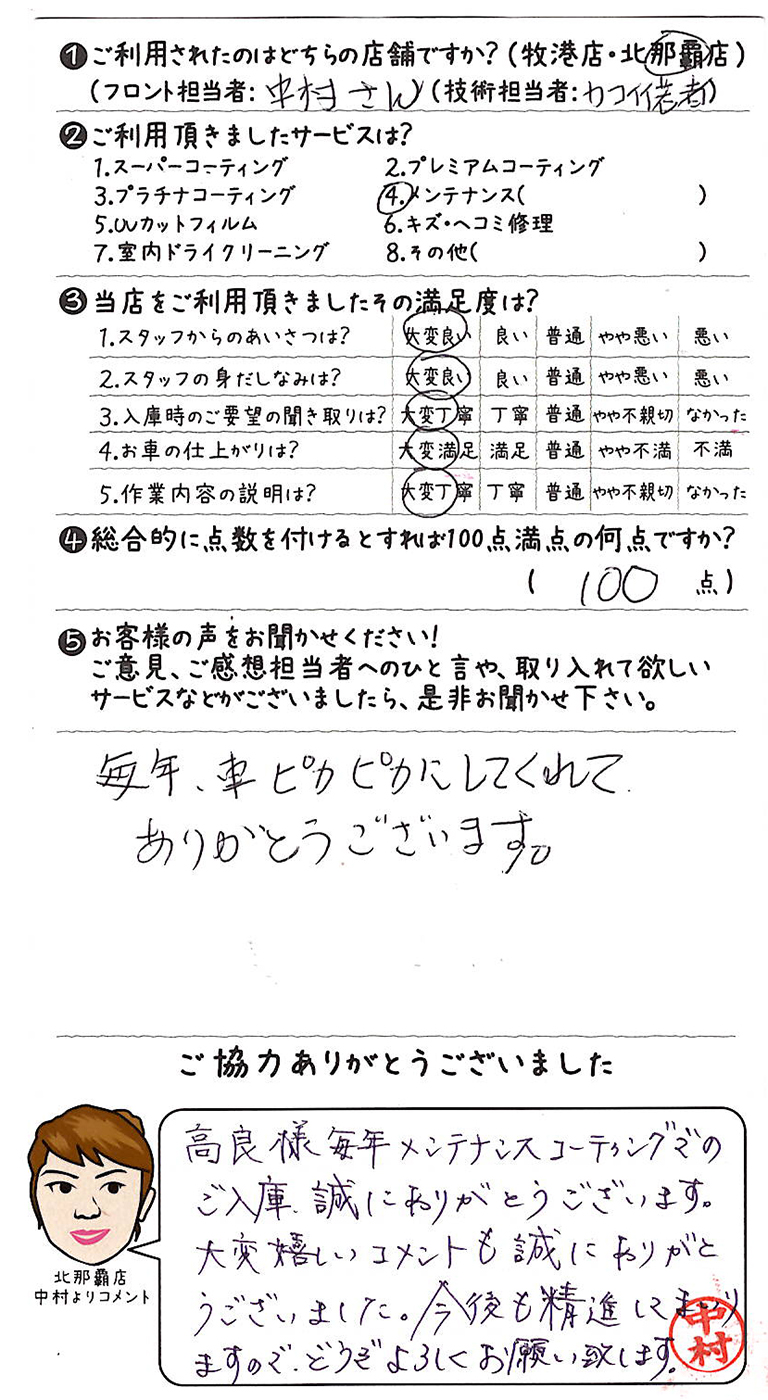 ❶ご利用されたのはどちらの店舗ですか?(牧港店・北那覇店)
(フロント担当者:中村さん(技術担当者:カコイイ若者)
❷ご利用頂きましたサービスは?
1.スーパーコーティング 2.プレミアムコーティング
3.プラチナコーティング 4.メンテナンス( )
5.UVカットフィルム 6.キズ・ヘコミ修理
7.室内ドライクリーニング 8.その他( )
❸当店をご利用頂きましたその満足度は?
1.スタッフからのあいさつは? 大変良い 良い 普通 やや悪い 悪い
2.スタッフの身だしなみは? 大変良い 良い 普通 やや悪い 悪い
3.入庫時のご要望の聞き取りは? 大変丁寧 丁寧 普通 やや不親切 なかった
4.お車の仕上がりは? 大変満足 満足 普通 やや不満 不満
5.作業内容の説明は? 大変丁寧 丁寧 普通 やや不親切 なかった
❹総合的に点数を付けるとすれば100点満点の何点ですか?
( 100 点)
❺お客様の声をお聞かせください!
ご意見、ご感想担当者へのひと言や、取り入れて欲しい
サービスなどがございましたら、是非お聞かせ下さい。
毎年、車ピカピカにしてくれて
ありがとうございます。
ご協力ありがとうございました
高良様毎年メンテナンスコーティングでの
ご入庫、誠にありがとうございます。
大変嬉しいコメントも誠にありがと
うございました。今後も精進してまいり
ますので、どうぞよろしくお願い致します。
中村
北那覇店
中村よりコメント